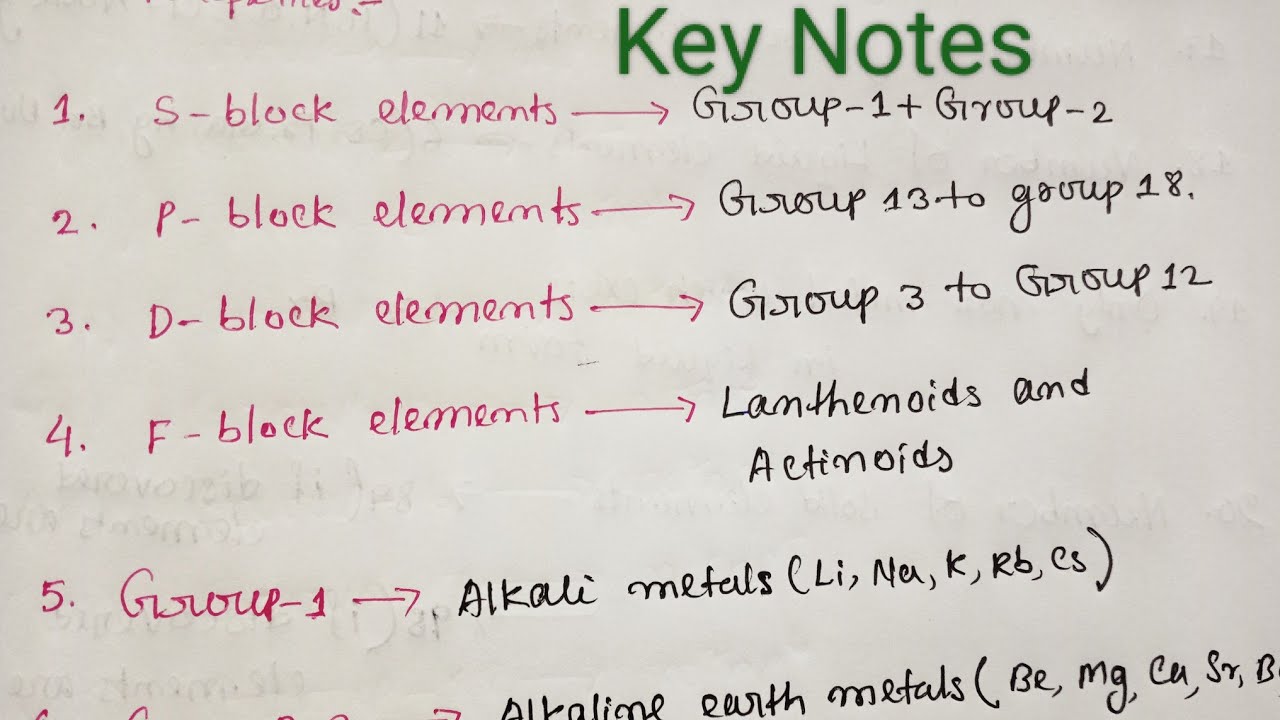 Key Notes
1. S-block elements → Group-1 + Group-2
2. P-block elements → Group 13 to group 18.
3. D-block elements → Group 3 to Group 12
4. F-block elements → Lanthenoids and
Actinoids
5. Group-1 → Alkali metals (Li, Na, K, Rb, Cs)
→ Alkaline earth metals (Be, Mg, Ca, Sr,